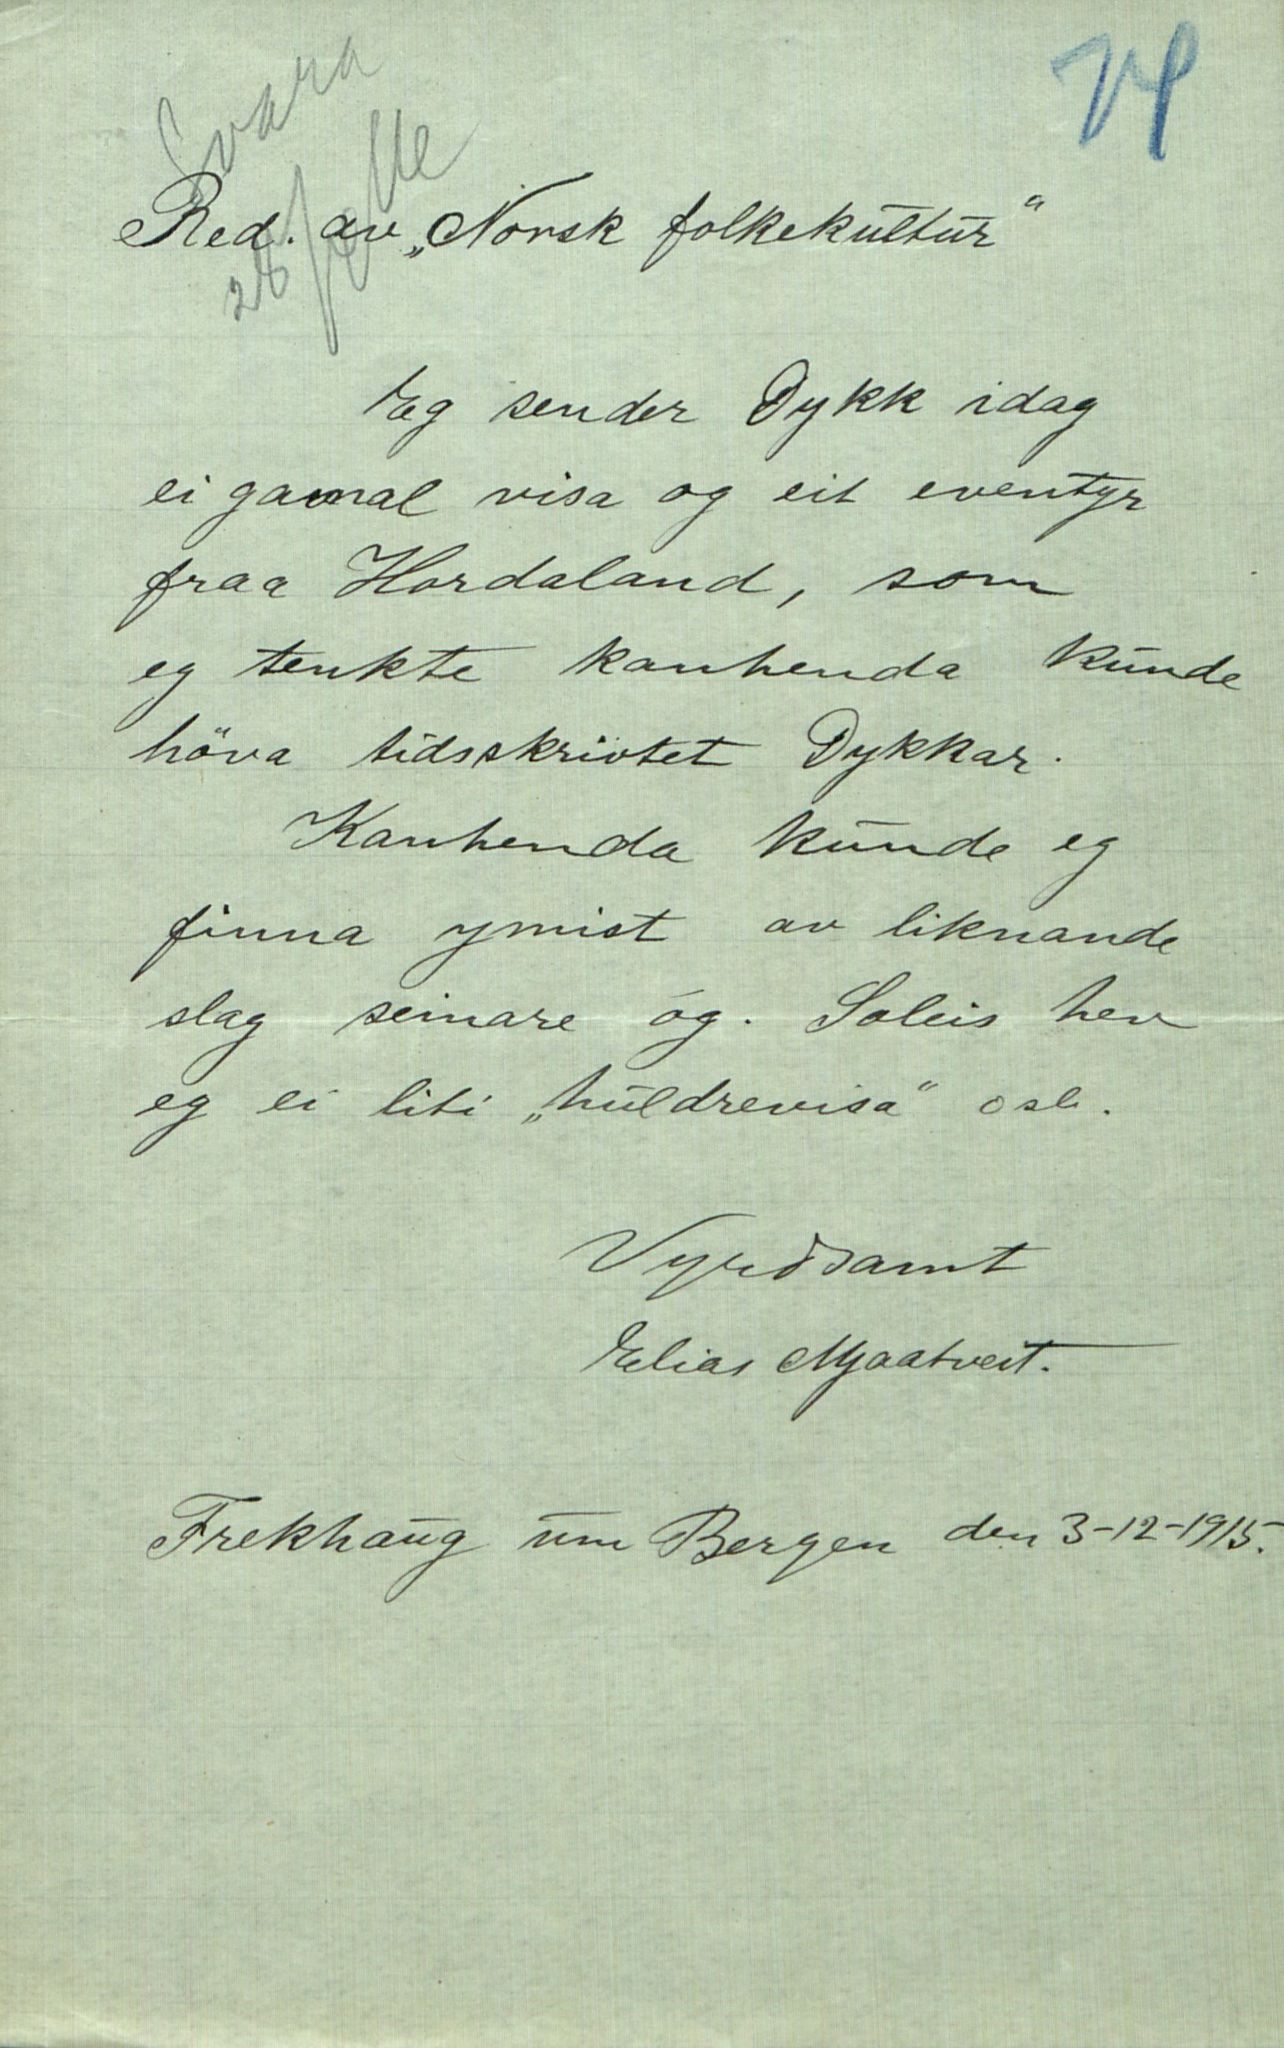 Svara
Red. av „Norsk folkekultur“
Eg sender Dykk idag
ei gamal visa og eit eventyr
fraa Hordaland, som
eg tenkte kanhenda kunde
höva tidsskrivtet Dykkar.
Kanhenda kunde eg
finna ymist av liknande
slag seinare óg. Soleis hev
eg ei liti „huldrevisa“ osb.
Vyrdsamt
Elias Mjaatveit.
Frekhaug um Bergen den 3-12-1915.